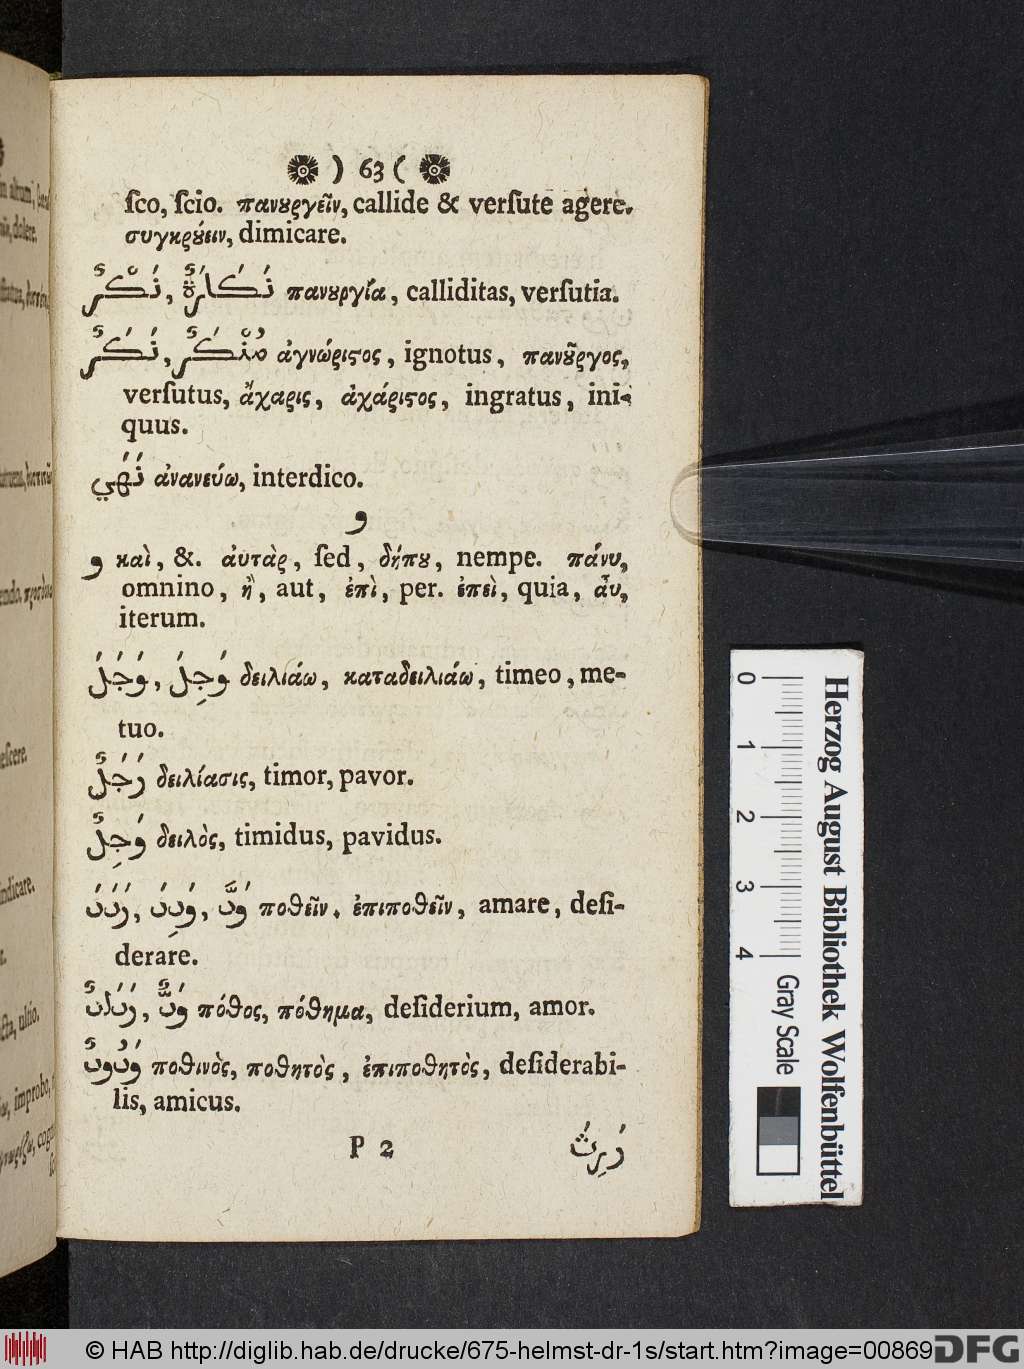 ) 63 (
ſco, ſcio. πανȣργεῖν, callide & verſute agere.
συγκρȣ́ειν, dimicare.
نَكْرٌ, نَكَارَةٌ πανȣργία, calliditas, verſutia.
نَكَرٌ, مُنْكَرٌ ἀγνώριϛος, ignotus, πανȣ͂ργος,
verſutus, ἄχαρις, ἀχάριϛος, ingratus, ini-
quus.
نَهَي ἀνανεύω, interdico.
و
و καὶ, &. ἀυτὰρ, ſed, δήπȣ, nempe. πάνυ,
omnino, ἢ, aut, ἐπὶ, per. ἐπεὶ, quia, ἆυ,
iterum.
وَجَلَ, وَجِلَ δειλιάω, καταδειλιάω, timeo, me-
tuo.
وَجَلٌ δειλίασις, timor, pavor.
وَجِلٌ δειλὸς, timidus, pavidus.
وَدَدَ, وَدِدَ, وَدَّ ποθεῖν, ἐπιποθεῖν, amare, deſi-
derare.
وَدَادٌ, وَدٌّ πόθος, πόθημα, deſiderium, amor.
وَدُودٌ ποθινὸς, ποθητὸς, ἐπιποθητὸς, deſiderabi-
lis, amicus.
P 2
وَرِثَ
Herzog August Bibliothek Wolfenbüttel
0 1 2 3 4
Gray Scale
© HAB http://diglib.hab.de/drucke/675-helmst-dr-1s/start.htm?image=00869
DFG